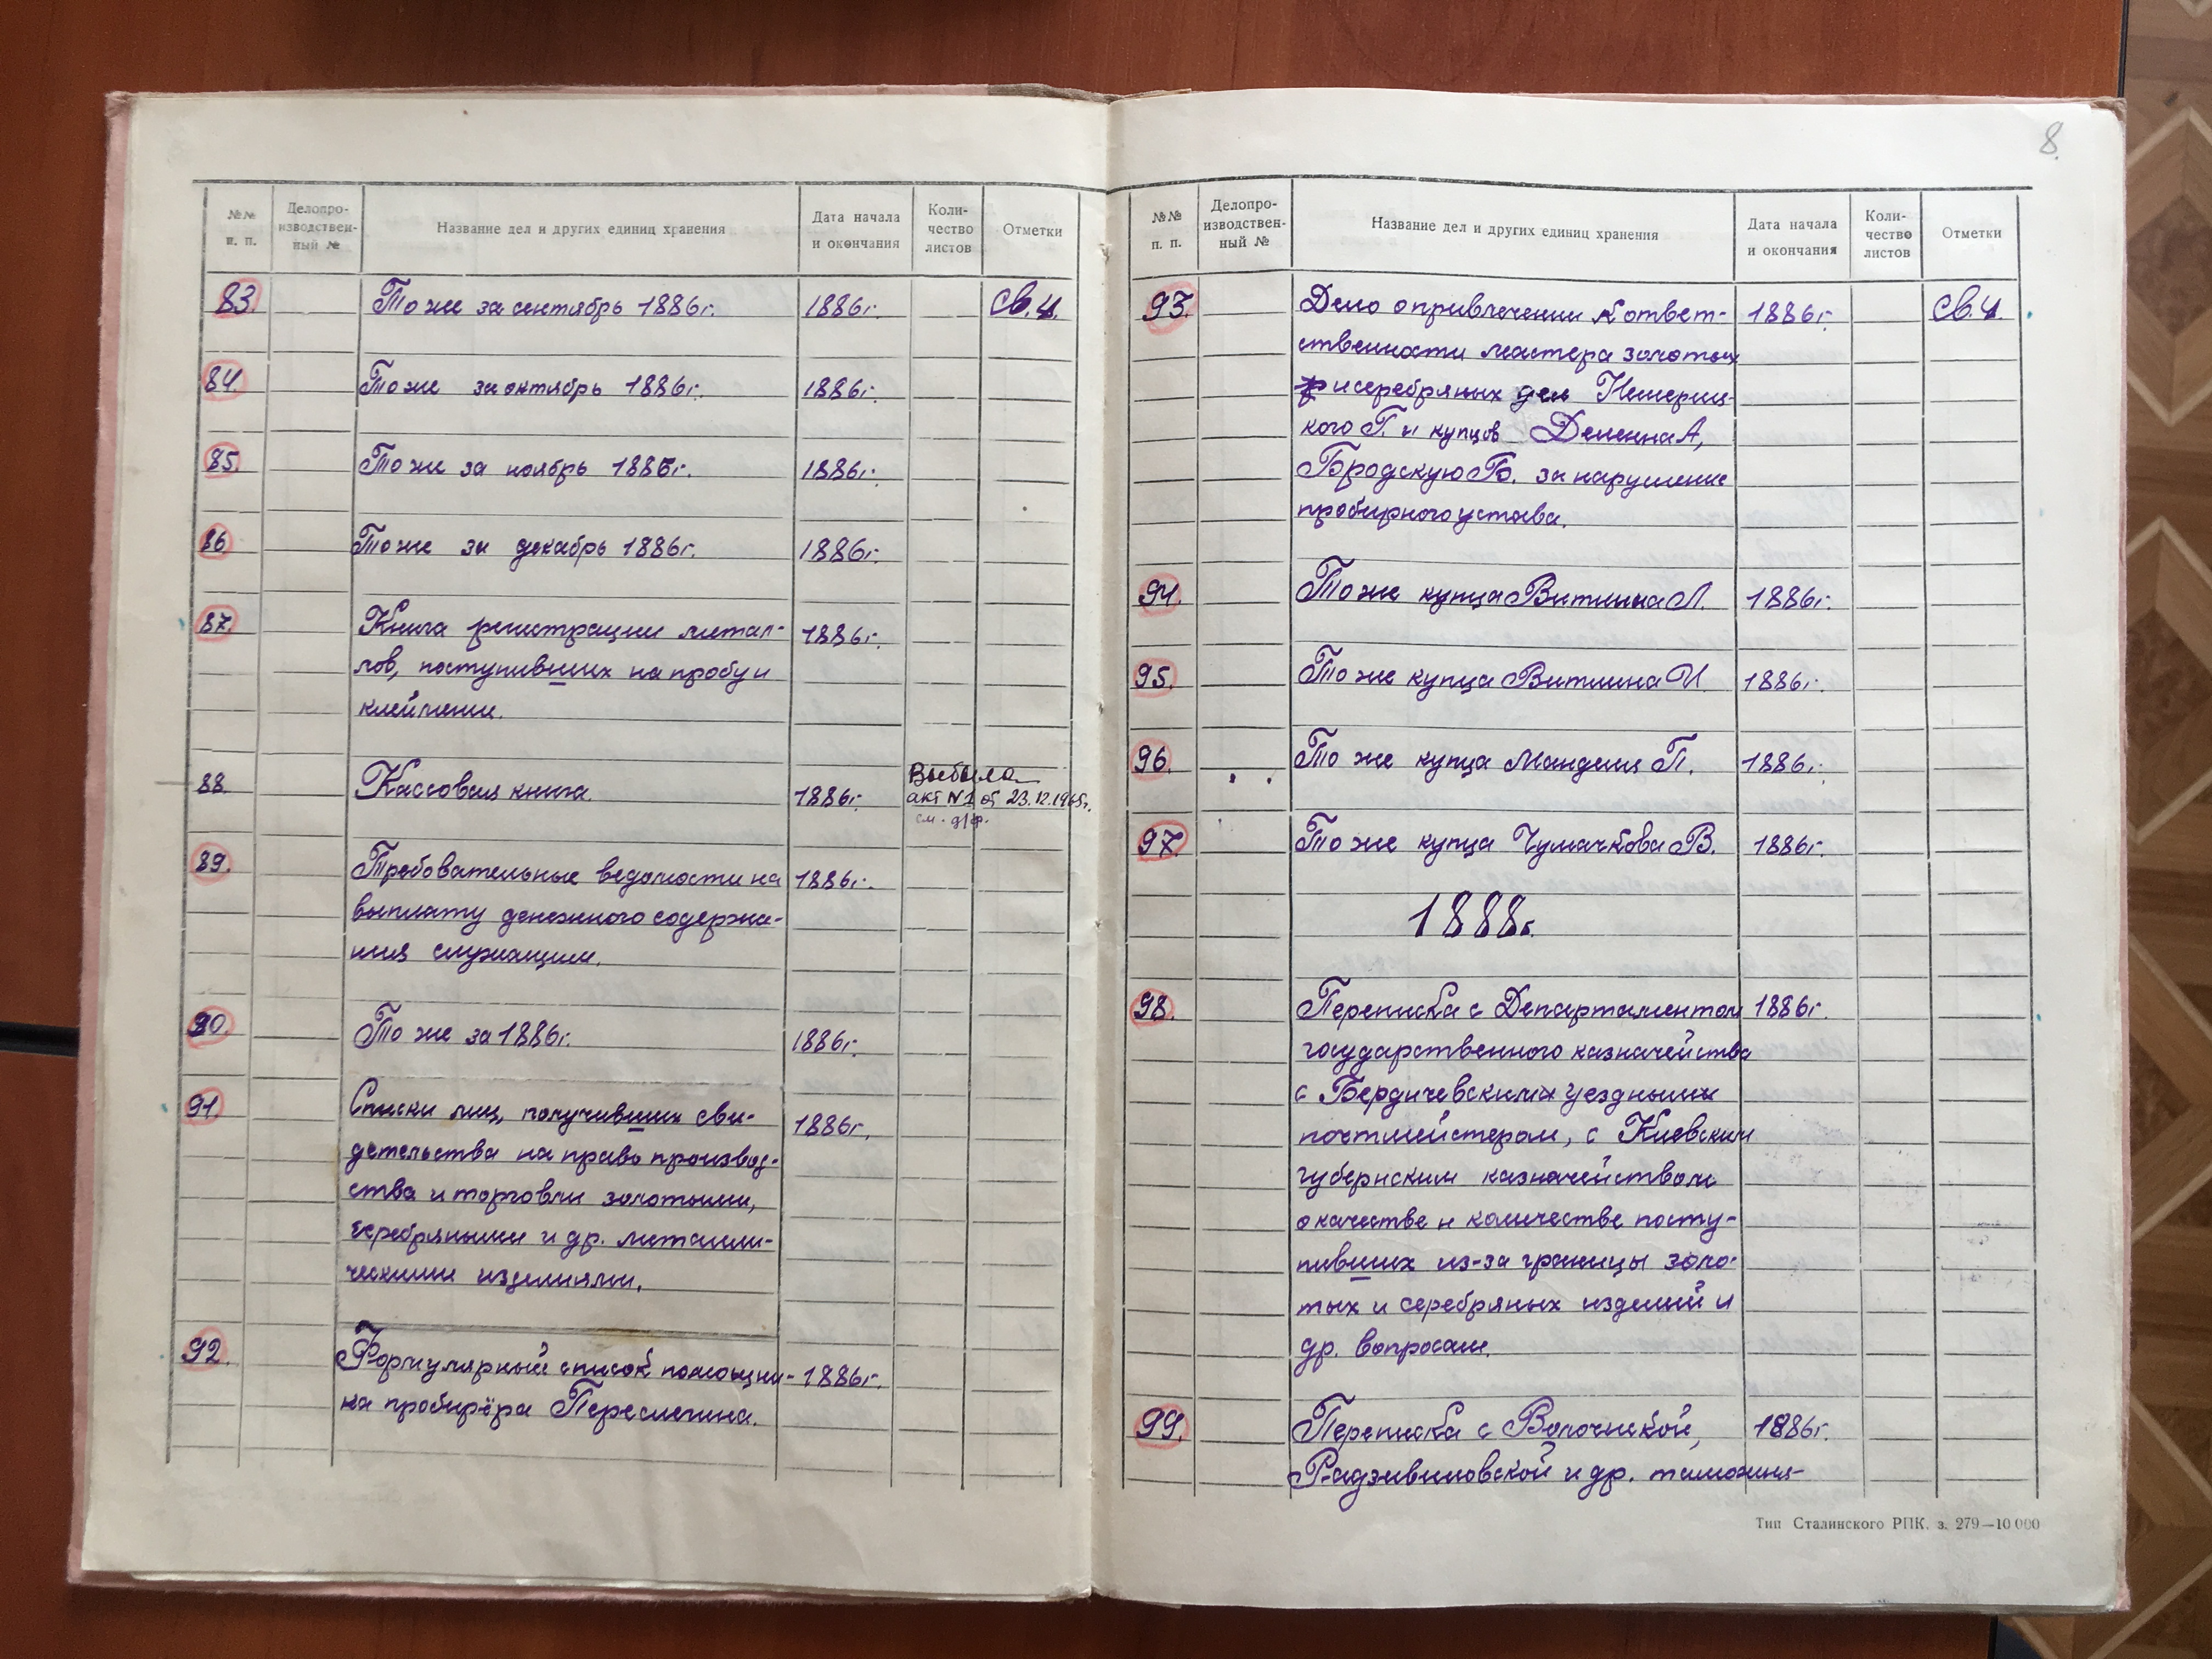 №№ п. п.
Делопро-
изводствен-
ный №
Название дел и других единиц хранения
Дата начала
и окончания
Коли-
чество
листов
Отметки
83. То же за сентябрь 1886г. 1886г. св. 4.
84. То же за октябрь 1886г. 1886г.
85. То же за ноябрь 1886г. 1886г.
86 То же за декабрь 1886г. 1886г.
87. Книга регистрации метал- 1886г.
лов, поступивших на пробу и
клеймени.
88. Кассовая книга. 1886г. Выбыла
акт №1 от 23.12.1965г.
см. д/ф.
89. Требовательные ведомости на 1886г.
выплату денежного содержа-
ния служащим.
90. То же за 1886г. 1886г.
91. Списки лиц, получивших сви- 1886г.
детельства на право производ-
ства и торговли золотыми,
серебряными и др. металли-
ческими изделиями.
92. Формулярный список помощни- 1886г.
ка пробирёра Пересметина.
8.
№№ п. п.
Делопро-
изводствен-
ный №
Название дел и других единиц хранения
Дата начала
и окончания
Коли-
чество
листов
Отметки
93. Дело о привлечении к ответ- 1886г. св. 4.
ственности мастера золотых
и серебряных дел
кого Г. и купцов А,
Бродскую Б. за нарушение
пробирного устава.
94. То же купца Витлина Л. 1886г.
95. То же купца Витлина И. 1886г.
96. То же купца П. 1886г.
97. То же купца Чумачкова В. 1886г.
1888г.
98. Переписка с Департаментом 1886г.
государственного казначейства
с Бердичевским уездным
почтмейстером, с Киевским
губернским казначейством
о качестве и количестве посту-
пивших из-за границы золо-
тых и серебряных изделий и
др. вопросам.
99. Переписка с Волочиской, 1886г.
Радзивиловской и др. таможня-
Тип Сталинского РПК. з. 279—10 000